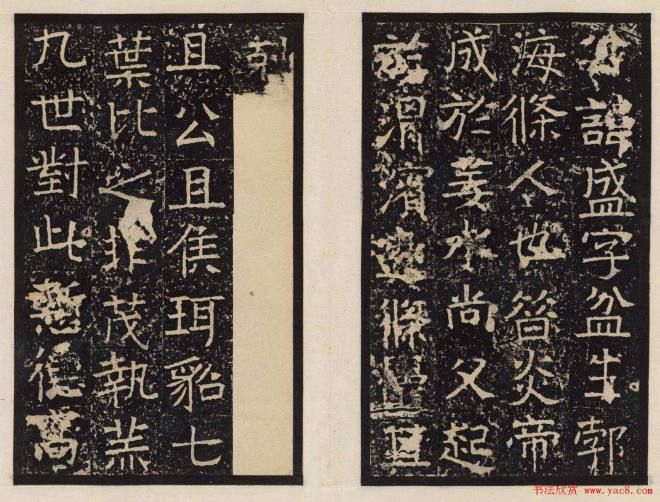 公諱盛字盆生郣
海條人也昔炎帝
成於姜水尚父起
於渭濱
且公且侯珥貂七
葉比之非茂執羔
九世對此慙德高
书法欣赏 www.yac8.com